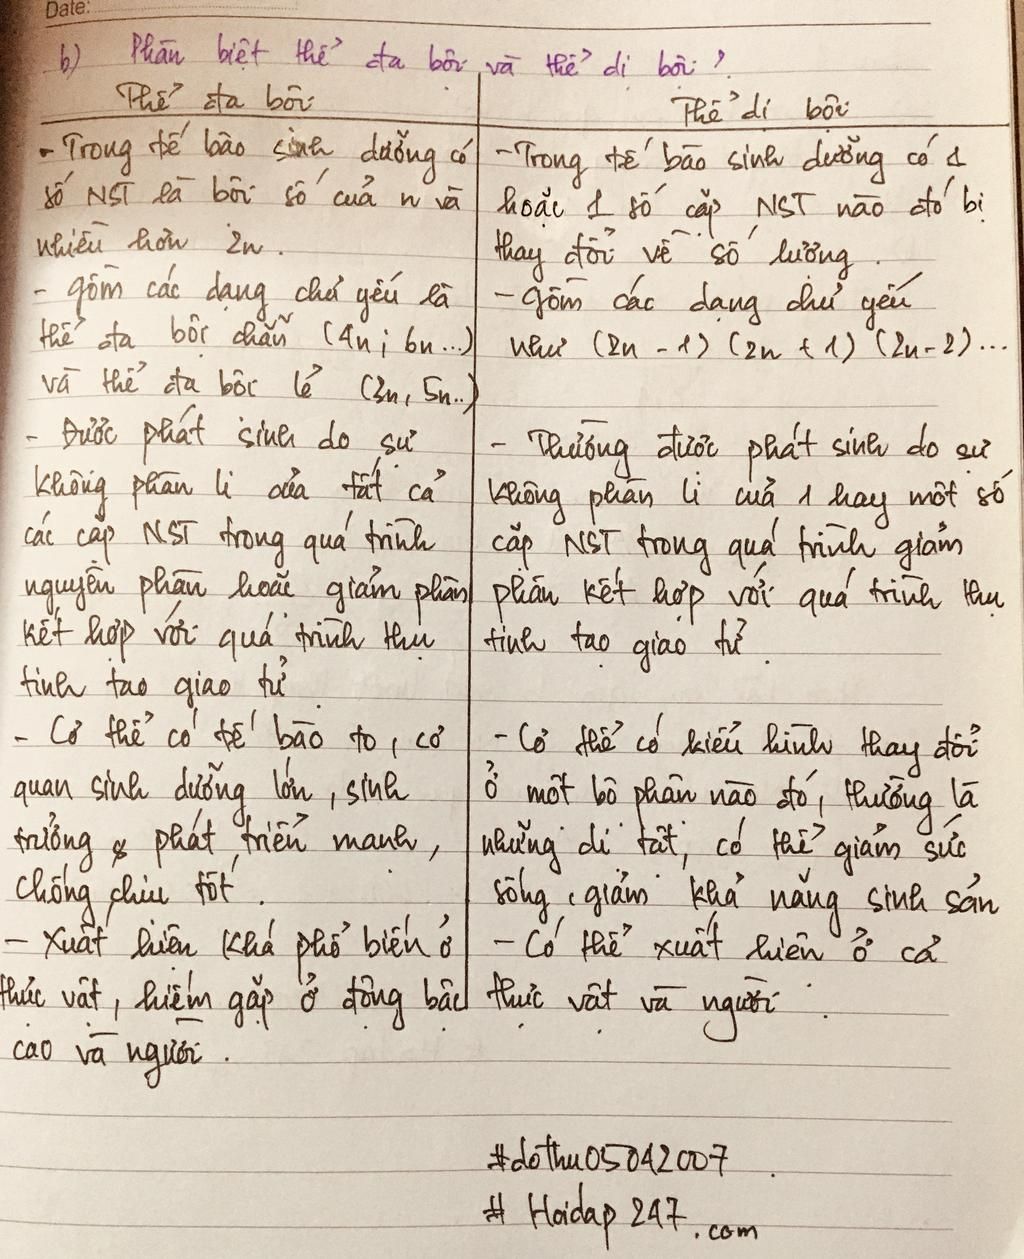 Date:
b) Phân biệt thể đa bội và thể dị bội?
Thể đa bội
- Trong tế bào sinh dưỡng có
số NST là bội số của n và
nhiều hơn 2n.
- Gồm các dạng chủ yếu là
thể đa bội chẵn (4n; 6n...)
và thể đa bội lẻ (3n, 5n..)
- Được phát sinh do sự
không phân li của tất cả
các cặp NST trong quá trình
nguyên phân hoặc giảm phân
kết hợp với quá trình thụ
tinh tạo giao tử
- Cơ thể có tế bào to, cơ
quan sinh dưỡng lớn, sinh
trưởng & phát triển mạnh,
chống chịu tốt.
- Xuất hiện khá phổ biến ở
thực vật, hiếm gặp ở động bậc
cao và người.
Thể dị bội
- Trong tế bào sinh dưỡng có 1
hoặc 1 số cặp NST nào đó bị
thay đổi về số lượng.
- Gồm các dạng chủ yếu
như (2n - 1) (2n + 1) (2n - 2) ...
- Thường được phát sinh do sự
không phân li của 1 hay một số
cặp NST trong quá trình giảm
phân kết hợp với quá trình thụ
tinh tạo giao tử.
- Cơ thể có kiểu hình thay đổi
ở một bộ phận nào đó, thường là
những dị tật, có thể giảm sức
sống, giảm khả năng sinh sản
- Có thể xuất hiện ở cả
thực vật và người.
#dothu05042007
# Hoidap 247.com